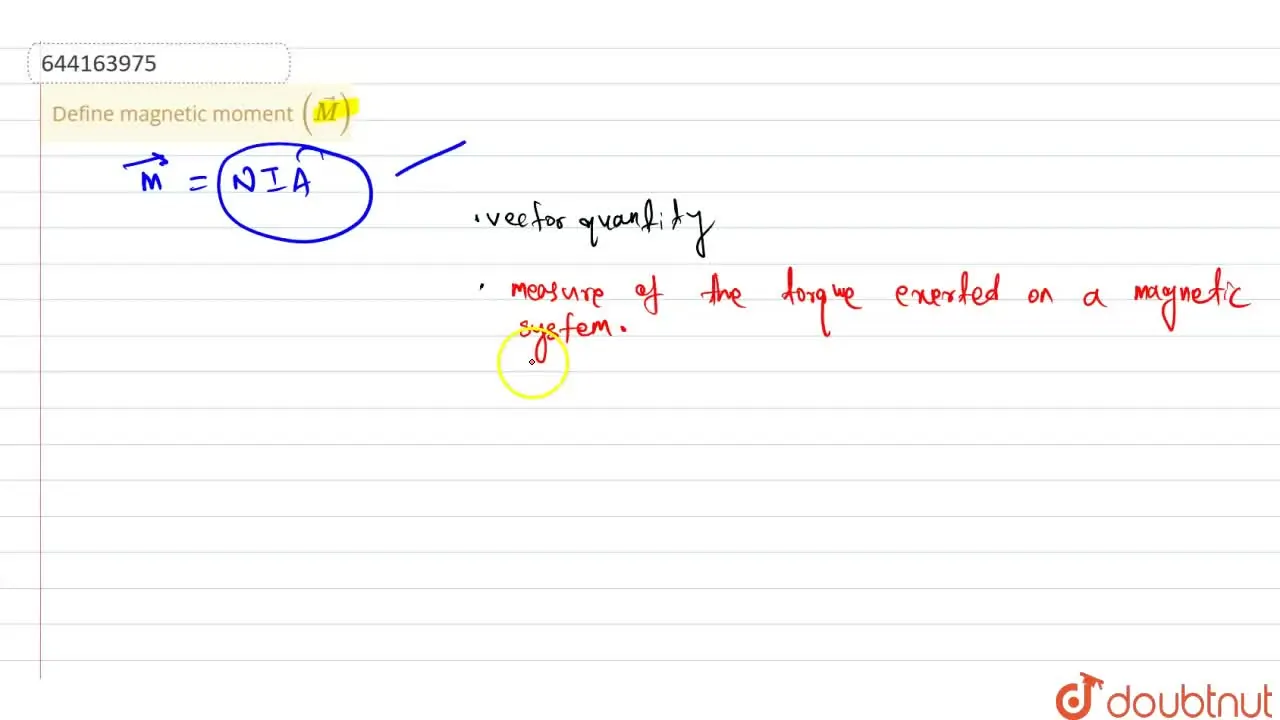 644163975
Define magnetic moment (M⃗)
M⃗ = NIA⃗
· vector quantity
· measure of the torque exerted on a magnetic
system.
doubtnut